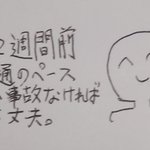 2週間前
通のペース
事故なければ
丈夫。